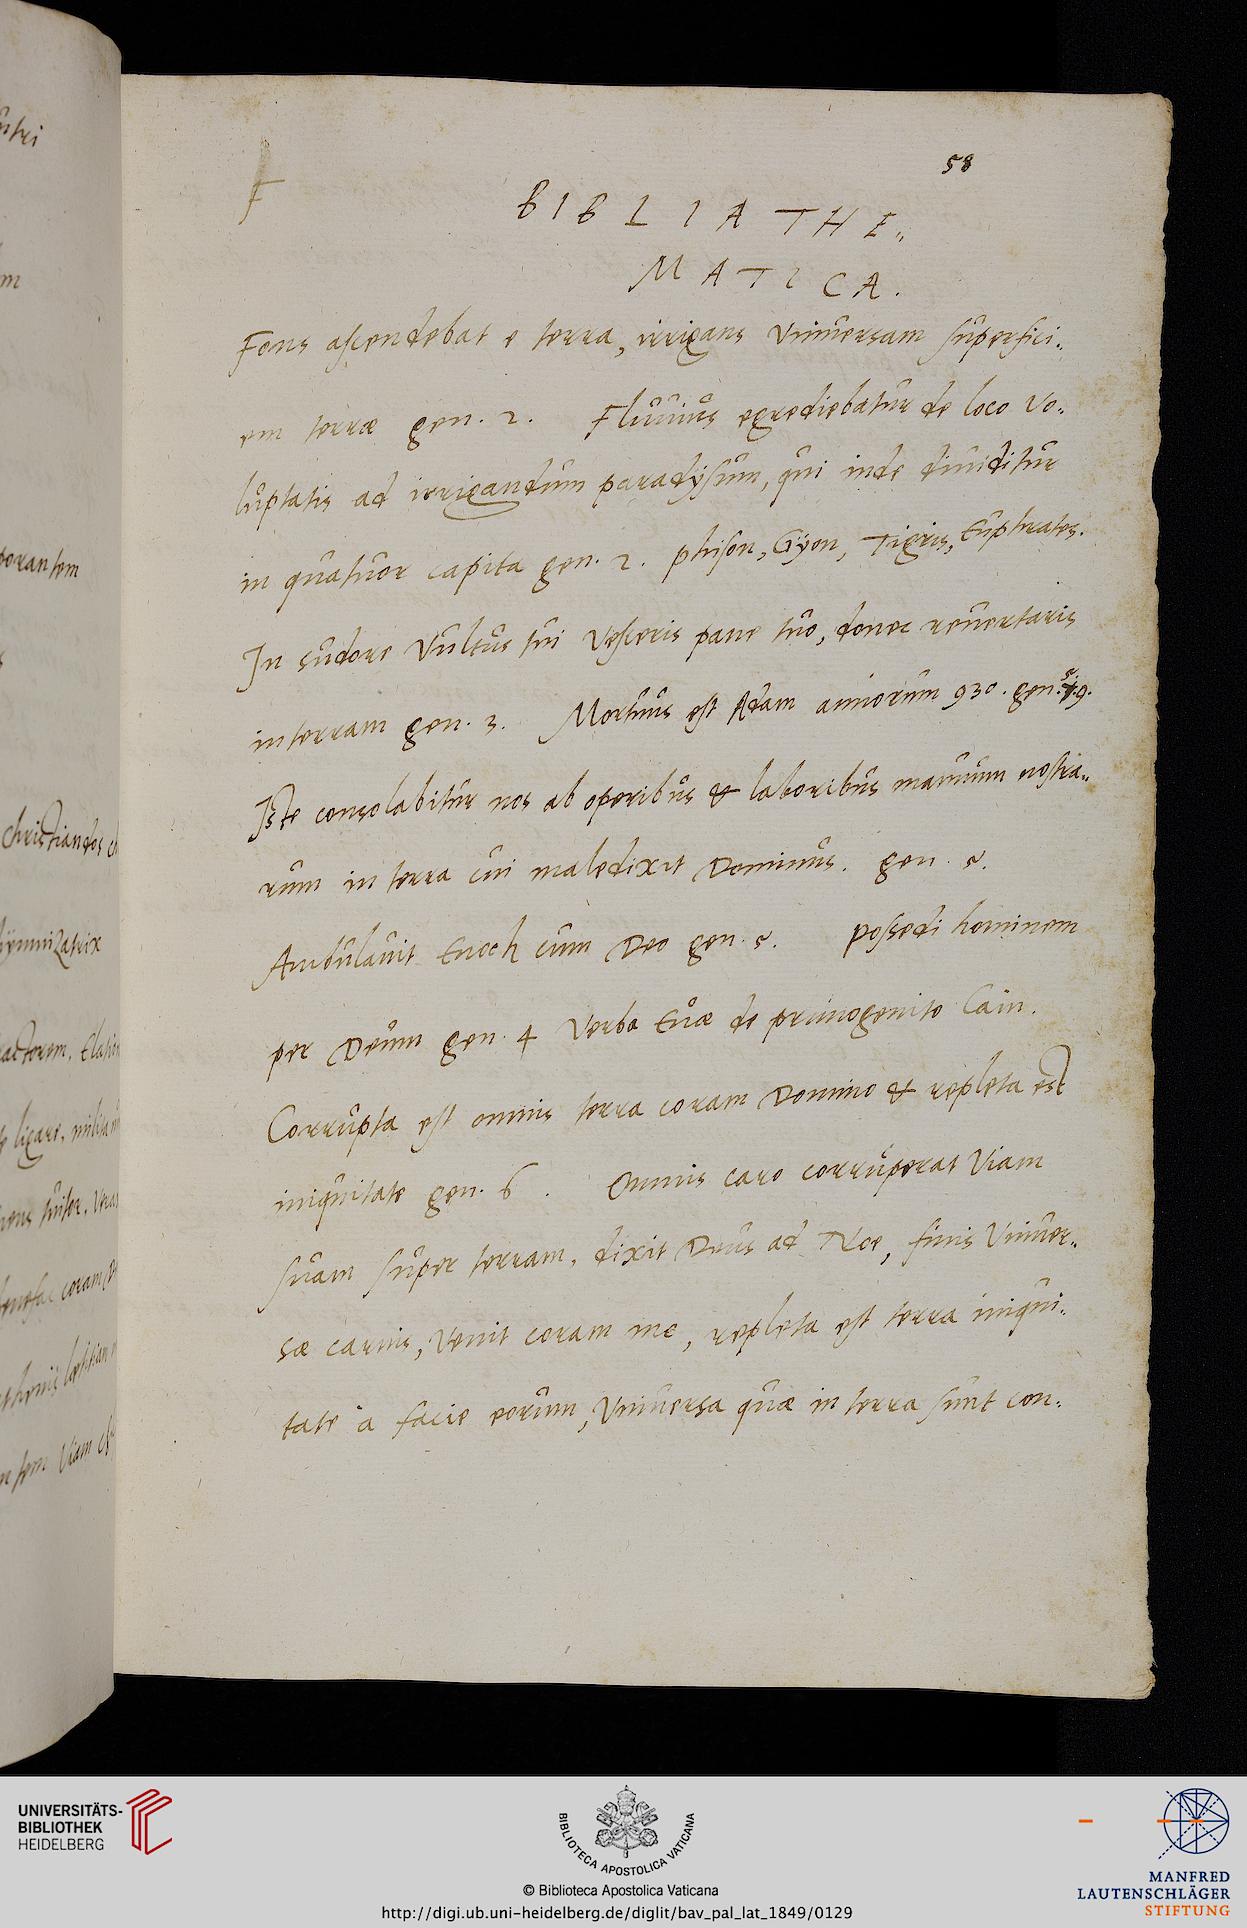 58
F
BIBLIA THE„
MATICA.
Fons ascendebat e terra, irrigans Universam superfici„
em terræ gen. 2. Fluuius egrediebatur de loco vo„
luptatis ad irrigandum paradÿsum, qui inde diuiditur
in quatuor capita gen. 2. phison, Gÿon, Tigris, Euphrates.
In sudore Vultus tui Vesceris pane tuo, donec reuertaris
in terram gen. 3. Mortuus est Adam annorum 930. gen. 5.
Iste consolabitur nos ab operibus & laboribus manuum nostra„
rum in terra cui maledixit Dominus. gen. 5.
Ambulauit Enoch cum Deo gen. 5. possedi hominem
per Deum gen. 4 Verba Euæ de primogenito Cain.
Corrupta est omnis terra coram Domino & repleta est
iniquitate gen. 6. Omnis caro corruperat Viam
suam super terram, dixit Deus ad Noe, finis Vniuer„
sæ carnis, Venit coram me, repleta est terra iniqui„
tate a facie eorum, Vniuersa quæ in terra sunt con„
ntri
m
porantem
Christiandos
hÿmnizatrix
actorem, Elation
ligare, milita
tuitor, Vera
coram
lætitiam
Viam
UNIVERSITÄTS-
BIBLIOTHEK
HEIDELBERG
BIBLIOTECA APOSTOLICA VATICANA
© Biblioteca Apostolica Vaticana
http://digi.ub.uni-heidelberg.de/diglit/bav_pal_lat_1849/0129
MANFRED
LAUTENSCHLÄGER
STIFTUNG